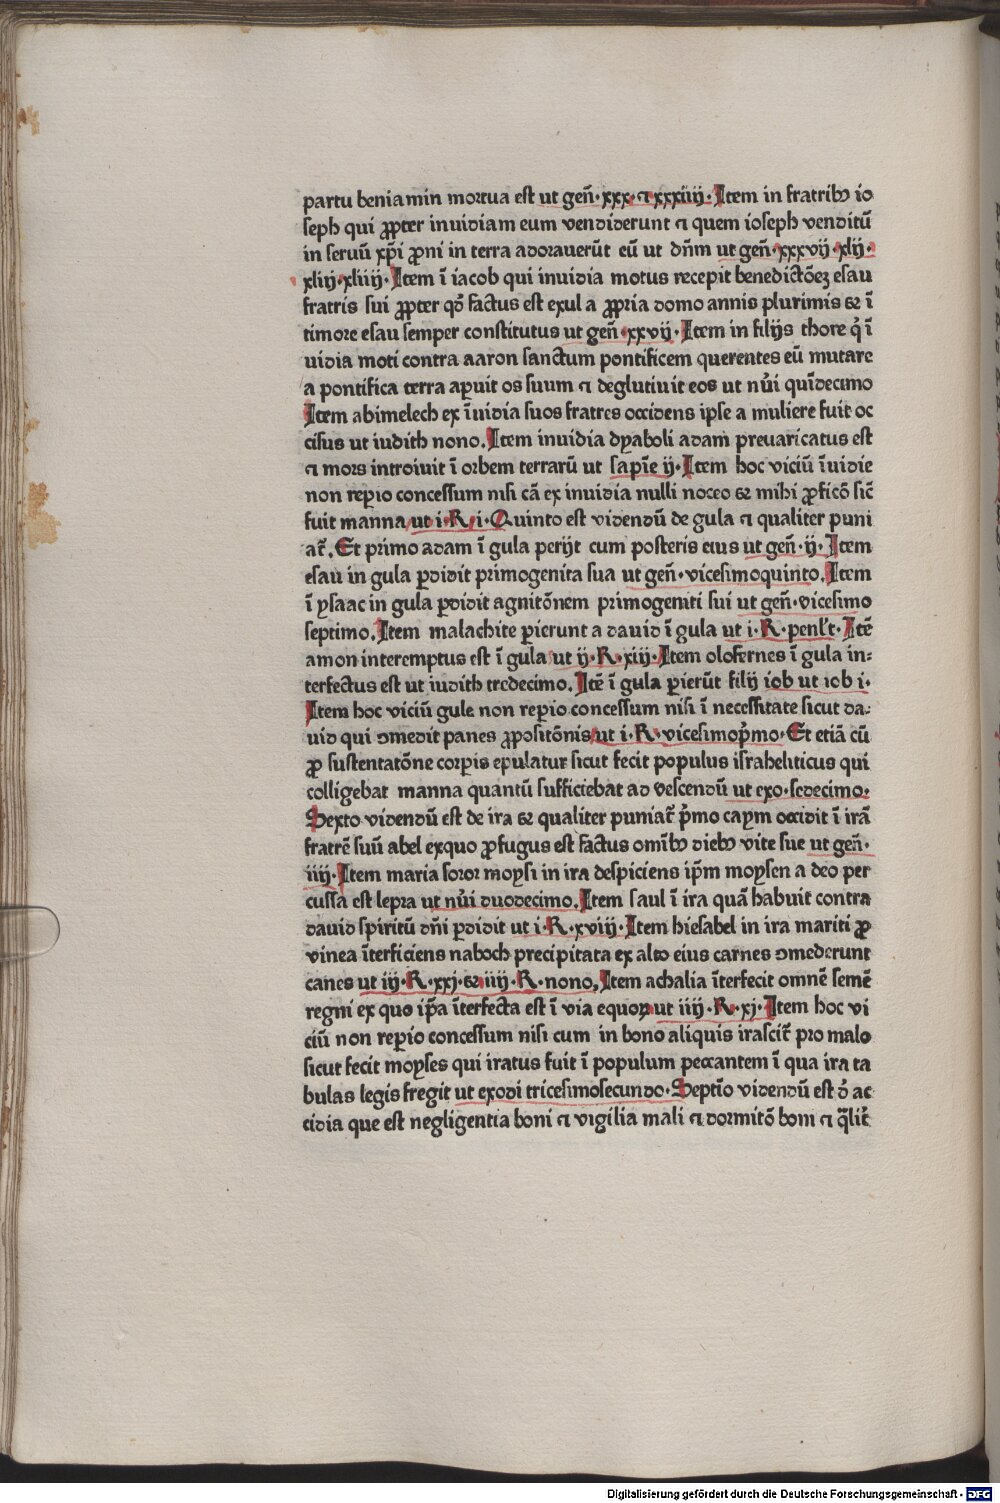 partu beniamin mortua est ut gen̄·xxx·⁊ xxxiiij·Item in fratribꝰ io
seph qui ꝓpter inuidiam eum vendiderunt ⁊ quem ioseph venditū
in seruū xp̄i ꝓni in terra adorauerūt eū ut dn̄m ut gen̄·xxxvij·xlij·
xliij·xliiij·Item ī iacob qui inuidia motus recepit benedictōeꝫ esau
fratris sui ꝓpter qd̄ factus est exul a ꝓpria domo annis plurimis ⁊ ī
timore esau semper constitutus ut gen̄·xxvij·Item in filijs chore q̇ ī
uidia moti contra aaron sanctum pontificem querentes eū mutare
a pontifica terra aꝑuit os suum ⁊ deglutiuit eos ut nūi quīdecimo
Item abimelech ex īuidia suos fratres occidens ipse a muliere fuit oc
cisus ut iudith nono.Item inuidia dyaboli adam preuaricatus est
⁊ mors introiuit ī orbem terrarū ut sapīe ij·Item hoc viciū īuidie
non reꝑio concessum nisi cā ex inuidia nulli noceo ⁊ mihi ꝓficō sic̄
fuit manna ut i·R·i·Quinto est videndū de gula ⁊ qualiter puni
at̄.Et primo adam ī gula perijt cum posteris eius ut gen̄·ij·Item
esau in gula ꝑdidit primogenita sua ut gen̄·vicesimoquinto.Item
ī ysaac in gula ꝑdidit agnitōnem primogeniti sui ut gen̄·vicesimo
septimo.Item malachite ꝑierunt a dauid ī gula ut i·R·penl̄t·Itē
amon interemptus est ī gula ut ij·R·xiij·Item olofernes ī gula in⸗
terfectus est ut iudith tredecimo.Itē ī gula ꝑierūt filij iob ut iob i·
Item hoc viciū gule non reꝑio concessum nisi ī necessitate sicut da⸗
uid qui ꝯmedit panes ꝓpositōnis ut i·R·vicesimop̄mo·Et etiā cū
ꝓ sustentatōne corꝑis epulatur sicut fecit populus israheliticus qui
colligebat manna quantū sufficiebat ad vescendū ut exo·sedecimo·
Sexto videndū est de ira ⁊ qualiter puniat̄ p̄mo caym occidit ī irā
fratrē suū abel exquo ꝓfugus est factus omībꝰ diebꝰ vite sue ut gen̄·
iiij·Item maria soror moysi in ira despiciens ip̄m moysen a deo per
cussa est lepra ut nūi duodecimo.Item saul ī ira quā habuit contra
dauid spiritū dn̄i ꝑdidit ut i·R·xviij·Item hiesabel in ira mariti ꝓ
vinea īterficiens naboch precipitata ex alto eius carnes ꝯmederunt
canes ut iij·R·xxj·⁊ iiij·R·nono,Item achalia īterfecit omnē semē
regni ex quo ip̄a īterfecta est ī via equoꝝ ut iiij·R·xj·Item hoc vi
ciū non reꝑio concessum nisi cum in bono aliquis irascit̄ pro malo
sicut fecit moyses qui iratus fuit ī populum peccantem ī qua ira ta
bulas legis fregit ut exodi tricesimosecundo·Septīo videndū est d̄ ac
cidia que est negligentia boni ⁊ vigilia mali ⁊ dormitō boni ⁊ q̄lit̄
Digitalisierung gefördert durch die Deutsche Forschungsgemeinschaft · DFG